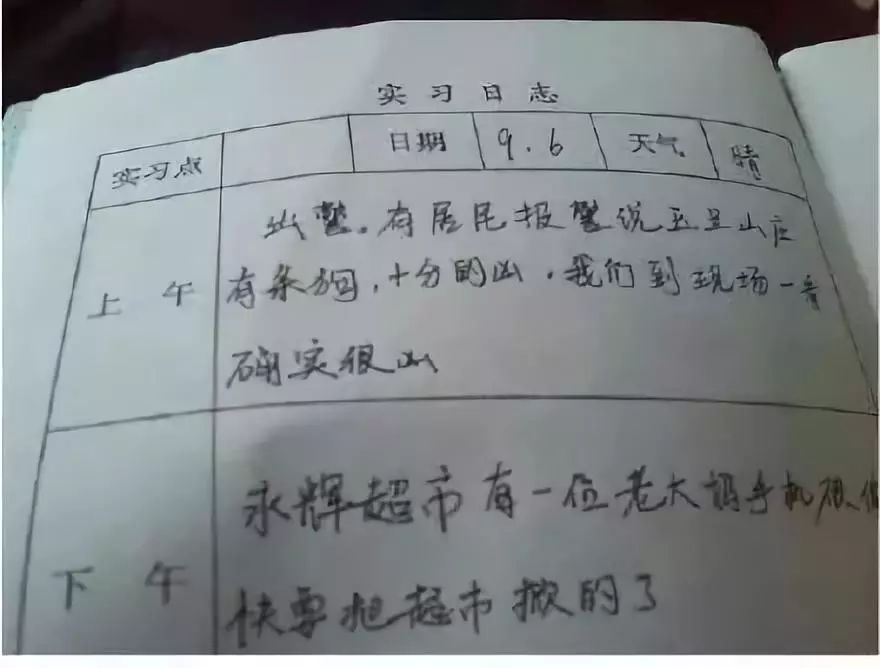 实习日志
实习点 日期 9.6 天气 晴
上午
出警。有居民报警说玉皇山庄
有条狗,十分的凶,我们到现场一看
确实很凶
下午
永辉超市有一位老大妈手机
快要把超市掀的了